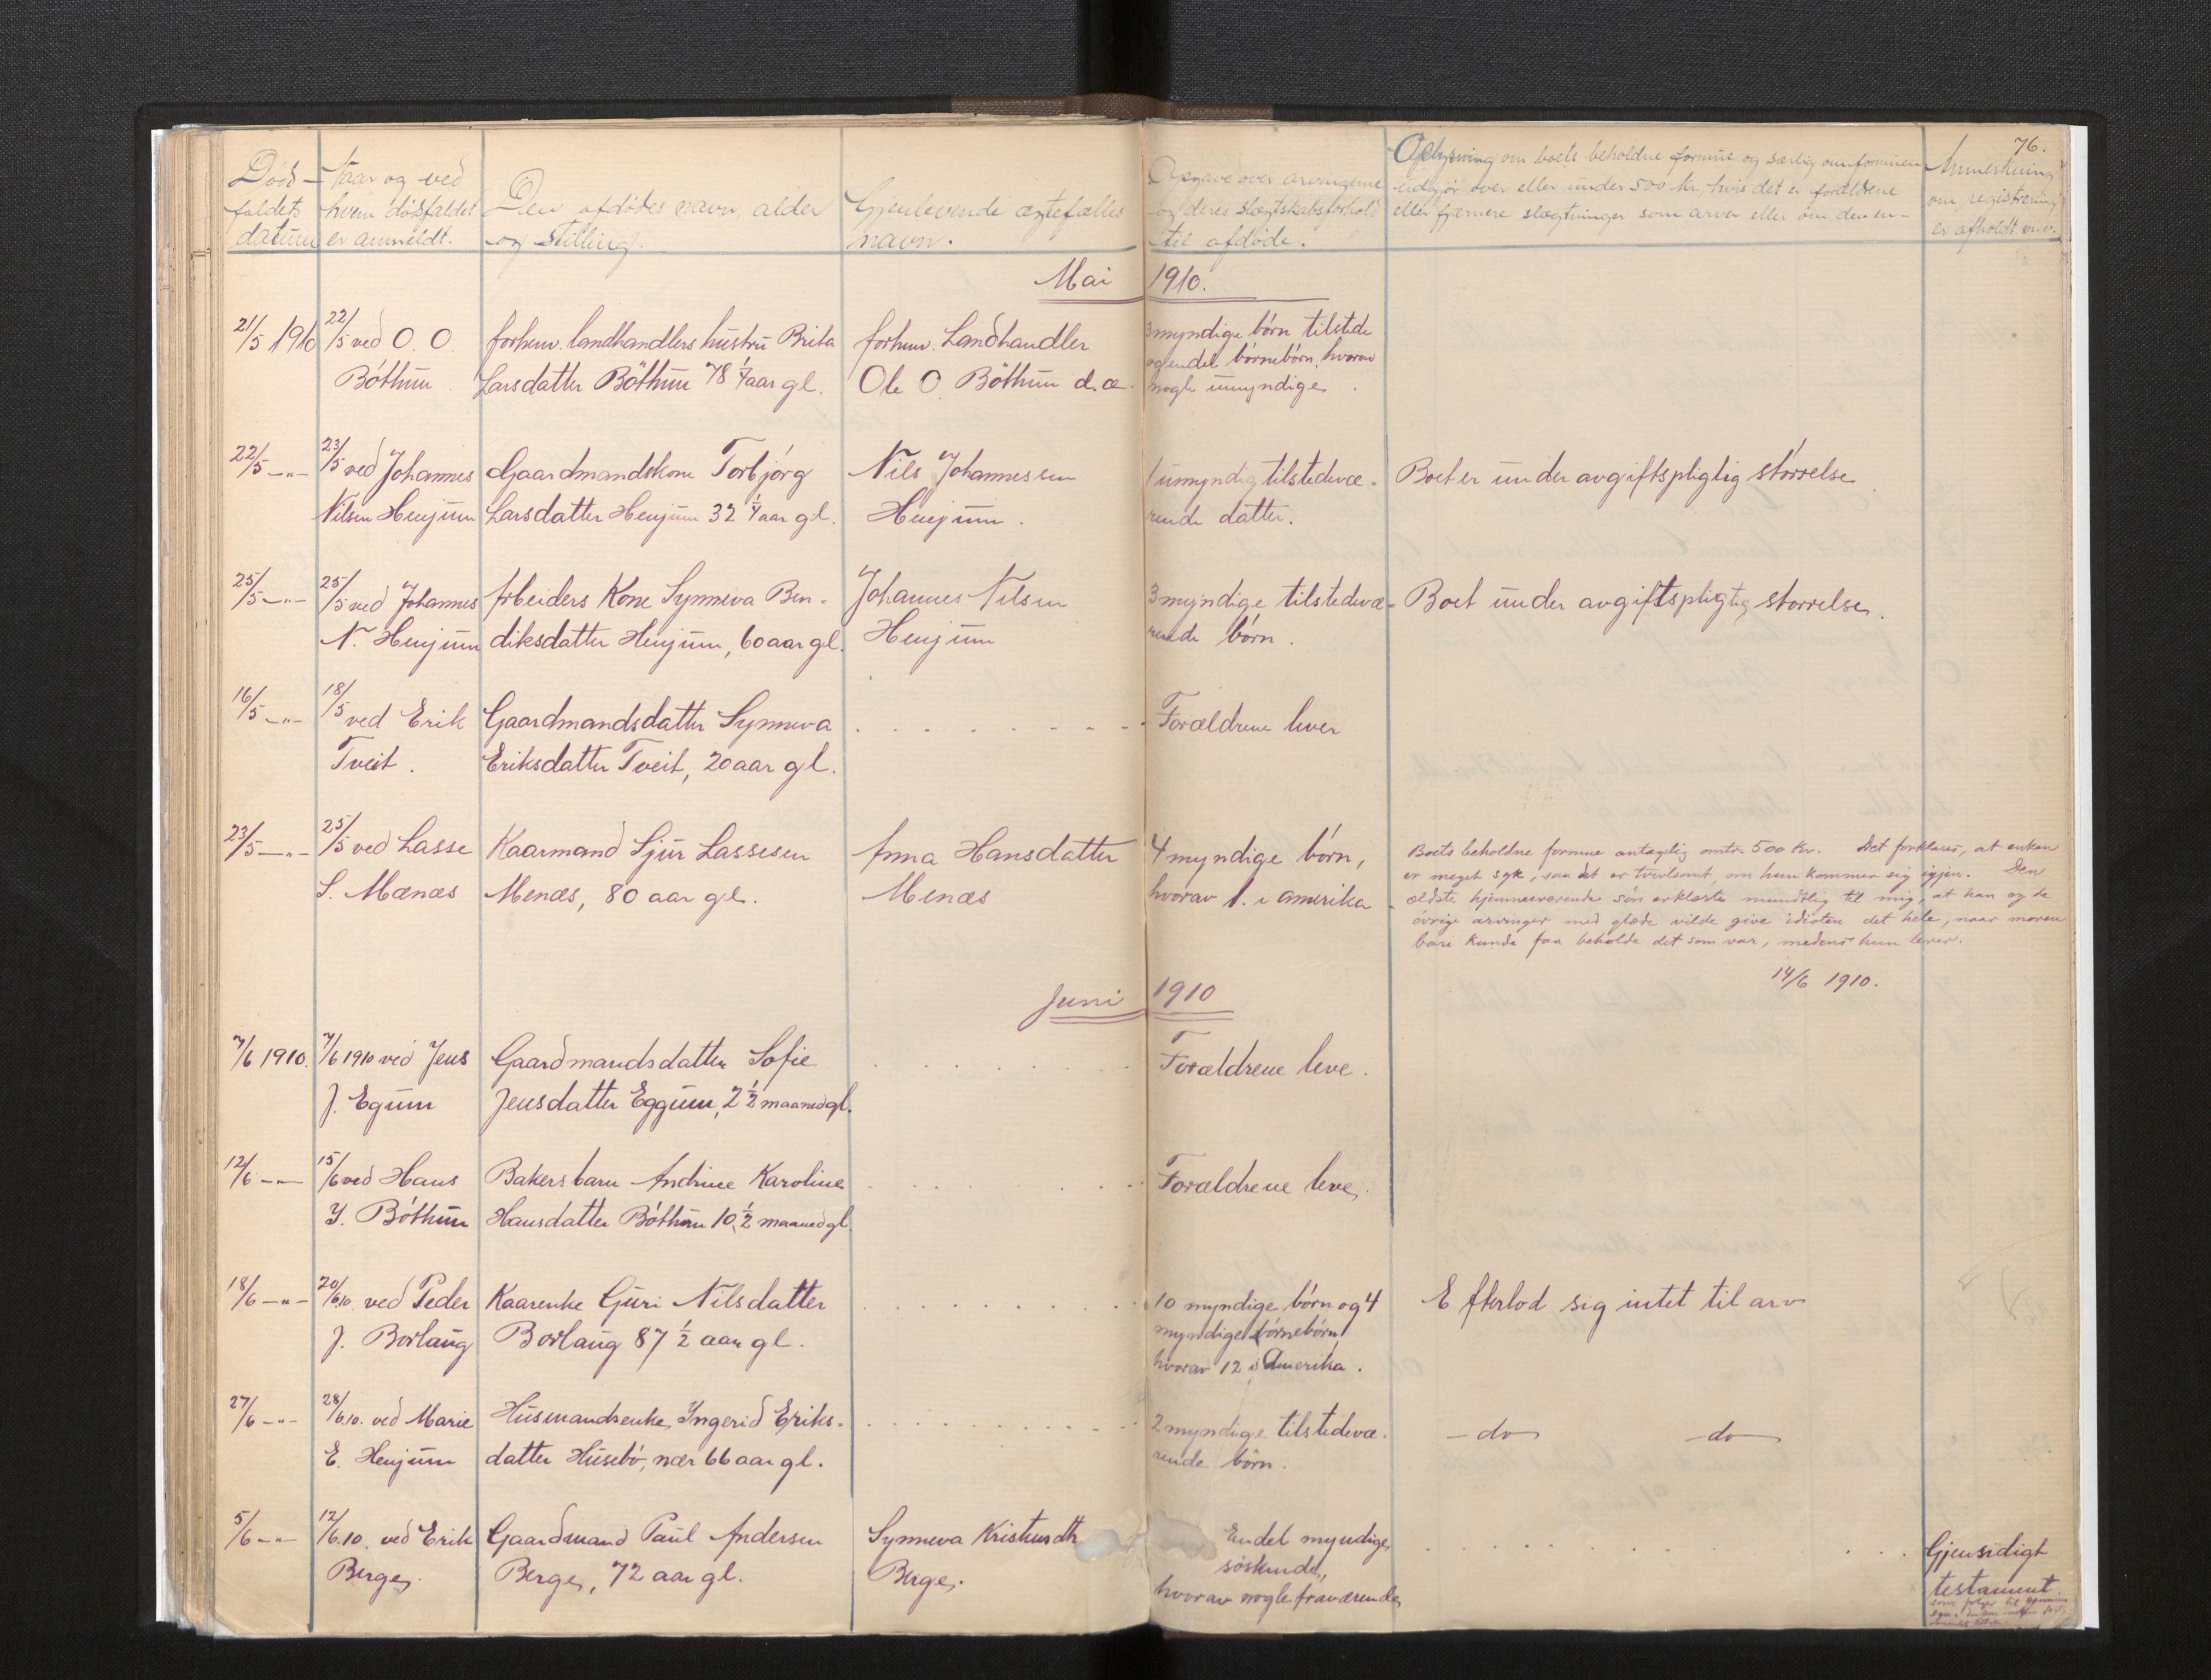 76.
Døds-
faldets
datum
Naar og ved
hvem dødsfaldet
er anmeldt.
Den afdødes navn, alder
og stilling.
Gjenlevende ægtefælles
navn.
Opgave over arvingerne
og deres slægtskabsforhold
til afdøde.
Oplysning om boets beholdne formue og særlig om formuen
udgjør over eller under 500 Kr, hvis det er forældrene
eller fjærnere slægtninger som arver eller om den en-
Anmerkning
om registrering
er afholdt m.v.
Mai 1910.
21/5 1910
22/5 ved O. O.
Böthun
forhenv. landhandlers hustru Brita
Larsdatter Böthun 78 1/4 aar gl.
forhenv. Landhandler
Ole O. Böthun d.æ.
3 myndige børn tilstede
og endel børnebørn, hvorav
nogle umyndige.
22/5 -"-
23/5 ved Johannes
Nilsen Henjum
Gaardmandskone Torbjørg
Larsdatter Henjum 32 1/4 aar gl.
Nils Johannessen
Henjum.
1 umyndig tilstedevæ-
rende datter.
Boet er under avgiftspligtig størrelse
25/5 -"-
25/5 ved Johannes
N. Henjum
Arbeiders Kone Synneva Ben-
diksdatter Henjum, 60 aar gl.
Johannes Nilsen
Henjum
3 myndige tilstedevæ-
rende børn.
Boet under avgiftspligtig størrelse.
16/5 -"-
18/5 ved Erik
Tveit.
Gaardmandsdatter Synneva
Eriksdatter Tveit, 20 aar gl.
Forældrene lever
23/5 -"-
25/5 ved Lasse
S. Mænæs
Kaarmand Sjur Lassesen
Menæs, 80 aar gl.
Anna Hansdatter
Menæs
4 myndige børn,
hvorav 1. i amerika
Boets beholdne formue antagelig omtr. 500 Kr. Det forklares, at enken
er meget syk, saa det er tvivlsomt, om hun kommer sig igjen. Den
ældste hjemmeværende søn erklærte mundtlig til mig, at han og de
øvrige arvinger med glæde vilde give idioten det hele, naar moren
bare kunde faa beholde det som var, medens hun lever.
14/6 1910.
Juni 1910
7/6 1910.
7/6 1910 ved Jens
J. Egum
Gaardmandsdatter Sofie
Jensdatter Eggum, 2 1/2 maaned gl.
Forældrene leve.
12/6 -"-
15/6 ved Hans
Y. Bøthun
Bakers barn Andrine Karoline
Hansdatter Bøthun 10 1/2 maaned gl.
Forældrene leve.
18/6 -"-
20/6.10. ved Peder
J. Borlaug
Kaarenke Guri Nilsdatter
Borlaug 87 1/2 aar gl.
10 myndige børn og 4
myndige børnebørn
hvorav 12 i Amerika.
Efterlod sig intet til arv
27/6 -"-
28/6.10. ved Marie
E. Henjum
Husmandsenke, Ingerid Eriks-
datter Husebø, nær 66 aar gl.
2 myndige tilstedevæ-
rende børn.
- do - - do -
5/6 -"-
12/6.10. ved Erik
Berge.
Gaardmand Paul Andersen
Berge, 72 aar gl.
Synneva Kristensdtr
Berge.
Endel myndige
søskende,
hvorav nogle fraværende
Gjensidigt
testament.
som følger til